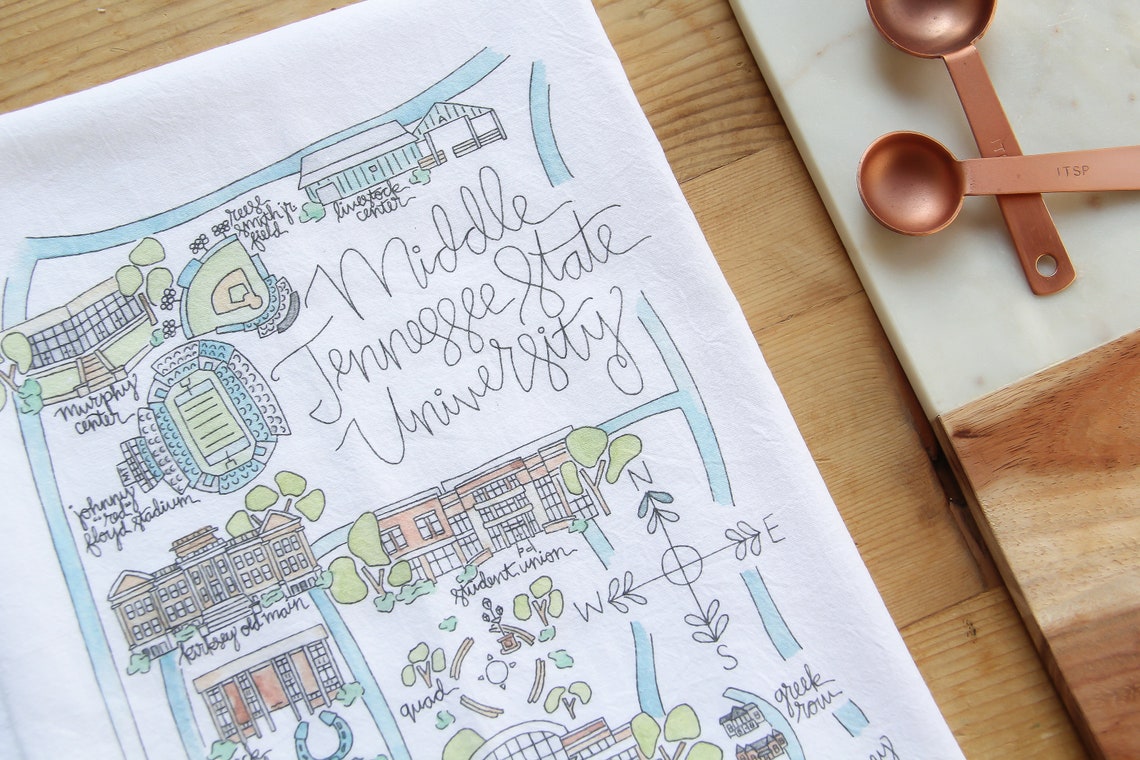 reese
smith jr.
field
livestock
center
Middle
Tennessee State
University
murphy
center
johnny
"red"
floyd stadium
student union
kirksey old main
N
E
W
S
quad
greek
row
1TSP